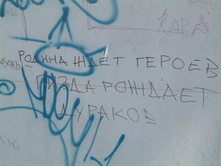 РОДИНА ЖДЕТ ГЕРОЕВ
ПИЗДА РОЖДАЕТ
ДУРАКОВ